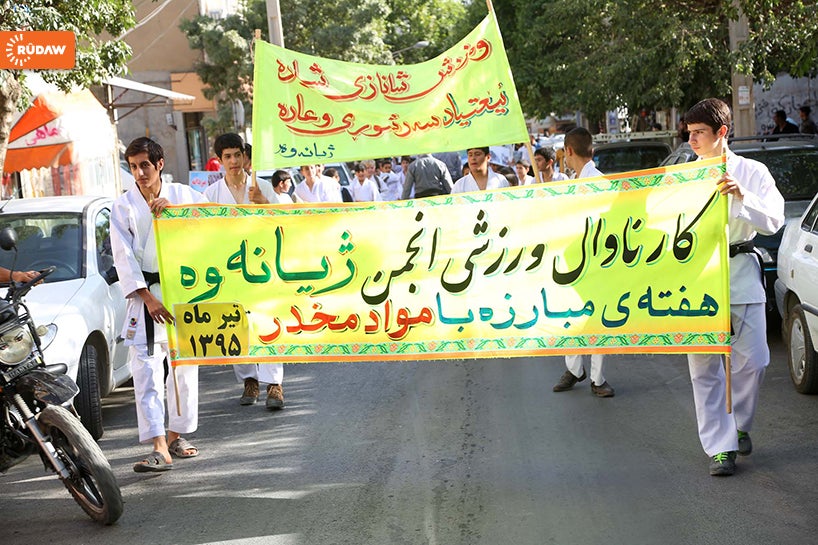 RÛDAW
وەرزش شانازی شارە
ئیعتیاد سەرشۆری و عارە
ژیانەوە
کارناوال ورزشی انجمن ژیانەوە
هفته ی مبارزه با مواد مخدر
تیر ماه
۱۳۹۵